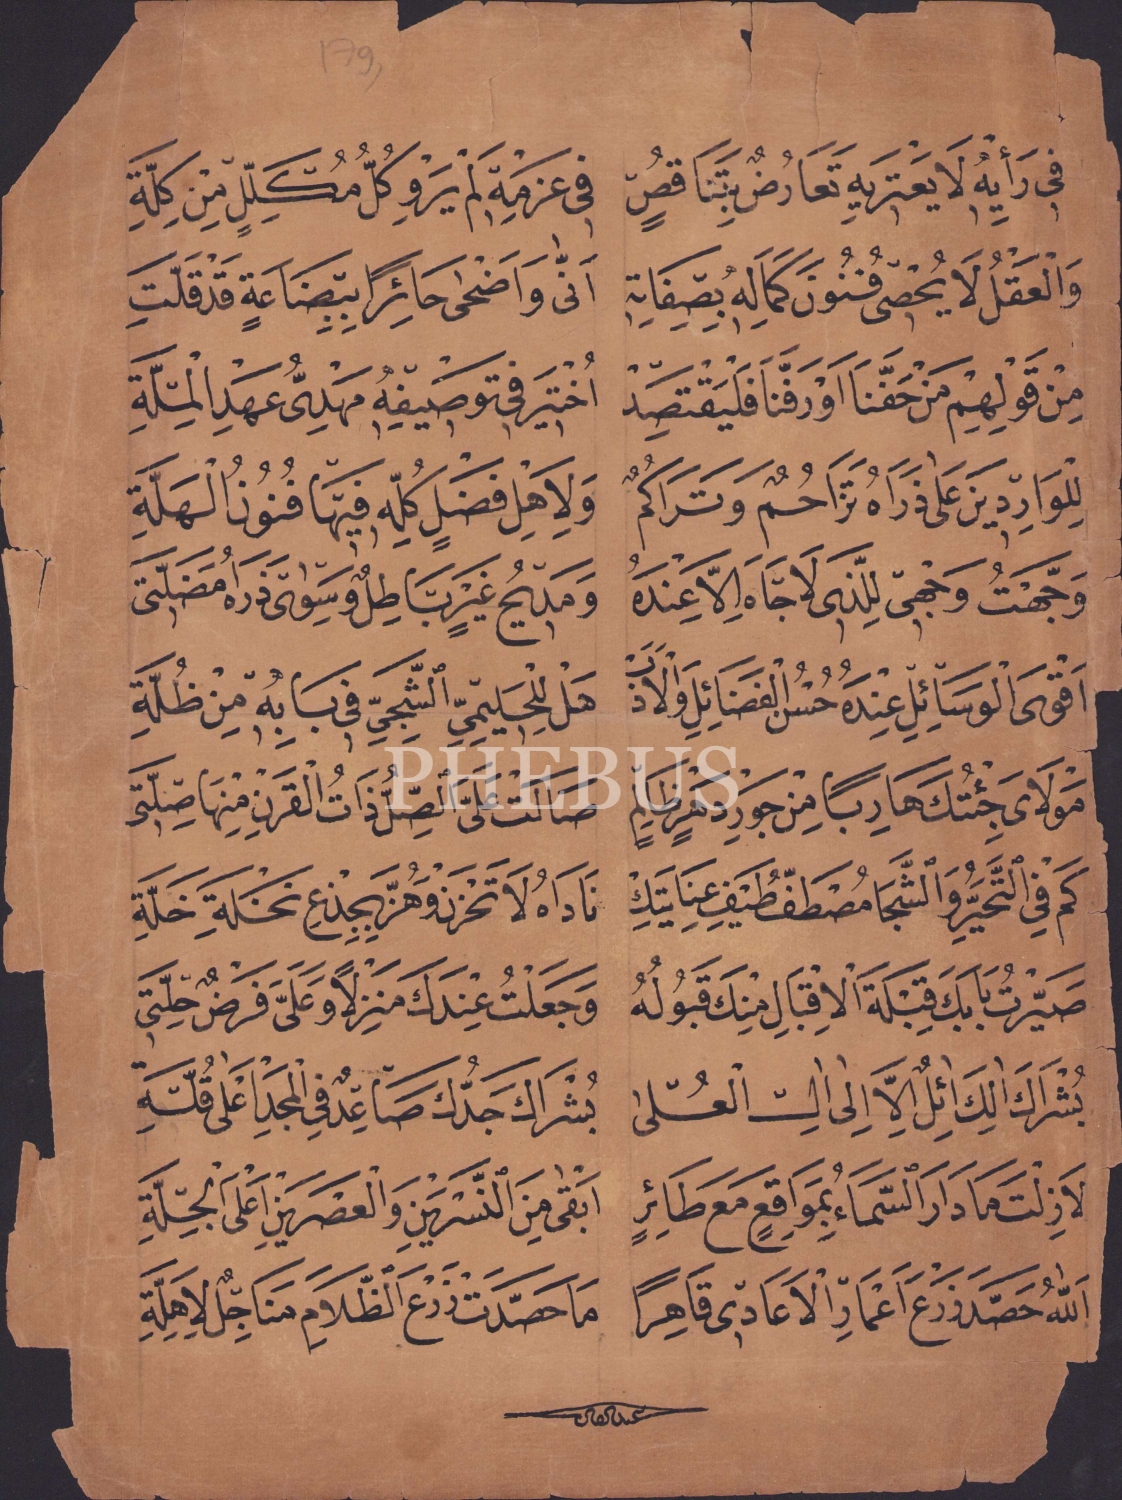 179
فِي رَأْيِهِ لَا يَعْتَرِيهِ تَعَارُضٌ بِتَنَاقُصٍ فِي عَزْمِهِ لَمْ يَرْوِ كُلُّ مُكَلِّلٍ مِنْ كِلَّةِ
وَالْعَقْلُ لَا يُحْصِي فُنُونَ كَمَالِهِ بِصِفَاتِهِ اَنّٰى وَاَضْحٰى حَائِرًا بِبِضَاعَةٍ قَدْ قَلَّتِ
مِنْ قَوْلِهِمْ مَنْ حَفَّنَا اَوْ رَفَّنَا فَلْيَقْتَصِدْ اُخْتِيرَ فِي تَوْصِيفِهِ مَهْدِيُّ عَهْدِ الْمِلَّةِ
لِلْوَارِدِينَ عَلٰى ذَرَاهُ تَزَاحُمٌ وَتَرَاكُمٌ وَلِاَهْلِ فَضْلٍ كُلِّهِ فِيهَا فُنُونُ الْهَلَّةِ
وَجَّهْتُ وَجْهِي لِلَّذِي لَا جَاهَ اِلَّا عِنْدَهُ وَمَدِيحُ غَيْرٍ بَاطِلٌ وَسِوٰى ذَرَاهُ مَضَلَّتِي
اَقْوَى الْوَسَائِلِ عِنْدَهُ حُسْنُ الْفَضَائِلِ وَالْاَدَبْ هَلْ لِلْحَلِيمِيِّ الشَّجِيِّ فِي بَابِهِ مِنْ ظُلَّةِ
مَوْلَايَ جِئْتُكَ هَارِبًا مِنْ جَوْرِ دَهْرٍ ظَالِمٍ صَالَتْ عَلَيَّ الصِّلُّ ذَاتُ الْقَرْنِ مِنْهَا صِلَّتِي
كَمْ فِي التَّحَيُّرِ وَالشَّجَا مُصْطَفٌّ طَيْفِ عِنَايَتِكْ نَادَاهُ لَا تَحْزَنْ وَهُزَّ بِجِذْعِ نَخْلَةِ خَلَّةِ
صَيَّرْتُ بَابَكَ قِبْلَةَ الْاِقْبَالِ مِنْكَ قَبُولُهُ وَجَعَلْتُ عِنْدَكَ مَنْزِلًا وَعَلَيَّ فَرْضٌ حِلَّتِي
بُشْرَاكَ الِكَ ائِلٌ اِلَّا اِلٰى اِلِّ الْعُلٰى بُشْرَاكَ جَدُّكَ صَاعِدٌ فِي الْمَجْدِ اَعْلٰى قُلَّةِ
لَا زِلْتَ مَا دَارَ السَّمَاءُ بِمَوَاقِعٍ مَعَ طَائِرٍ اَبْقٰى مِنَ النَّسْرَيْنِ وَالْعَصْرَيْنِ اَعْلَى الْجِلَّةِ
اَللّٰهُ حَصَّدَ زَرْعَ اَعْمَارِ الْاَعَادِي قَاهِرًا مَا حَصَّدَتْ زَرْعَ الظَّلَامِ مَنَاجِلُ لِاَهِلَّةِ
PHEBUS